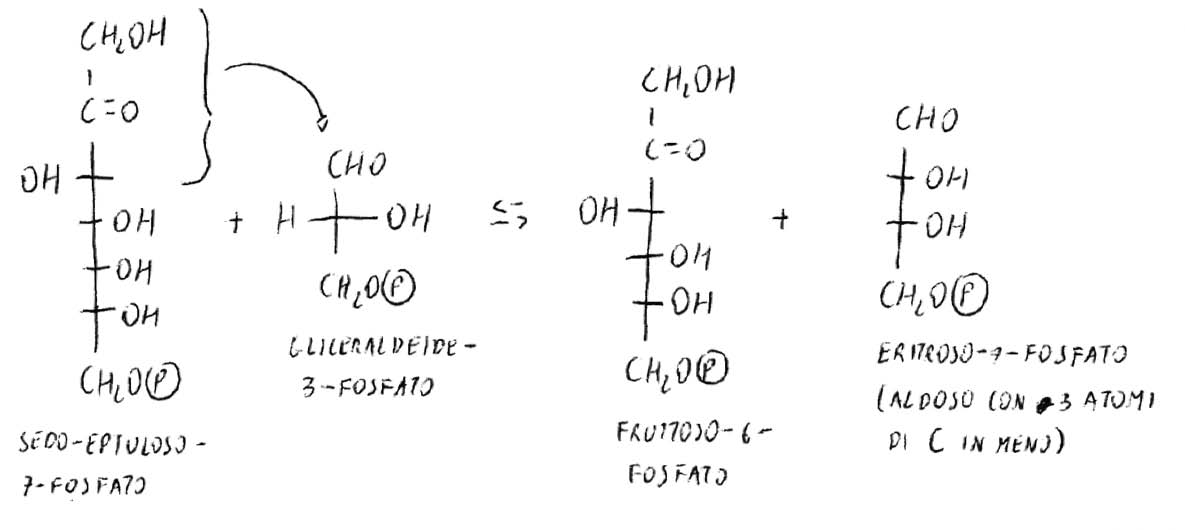 CH₂OH
C=O
OH
OH
OH
OH
CH₂O(P)
SEDO-EPTULOSO-
7-FOSFATO
+
CHO
H OH
CH₂O(P)
GLICERALDEIDE-
3-FOSFATO
⇆
CH₂OH
C=O
OH
OH
OH
CH₂O(P)
FRUTTOSO-6-
FOSFATO
+
CHO
OH
OH
CH₂O(P)
ERITROSO-4-FOSFATO
(ALDOSO CON 3 ATOMI
DI C IN MENO)